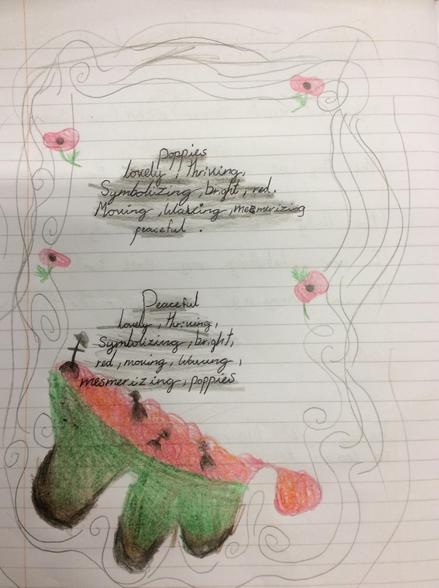 Poppies
lovely, thriving,
Symbolizing, bright, red.
Moving, Waving, mesmerizing
peaceful.
Peaceful
lovely, thriving,
Symbolizing, bright,
red, moving, waving,
mesmerizing, poppies